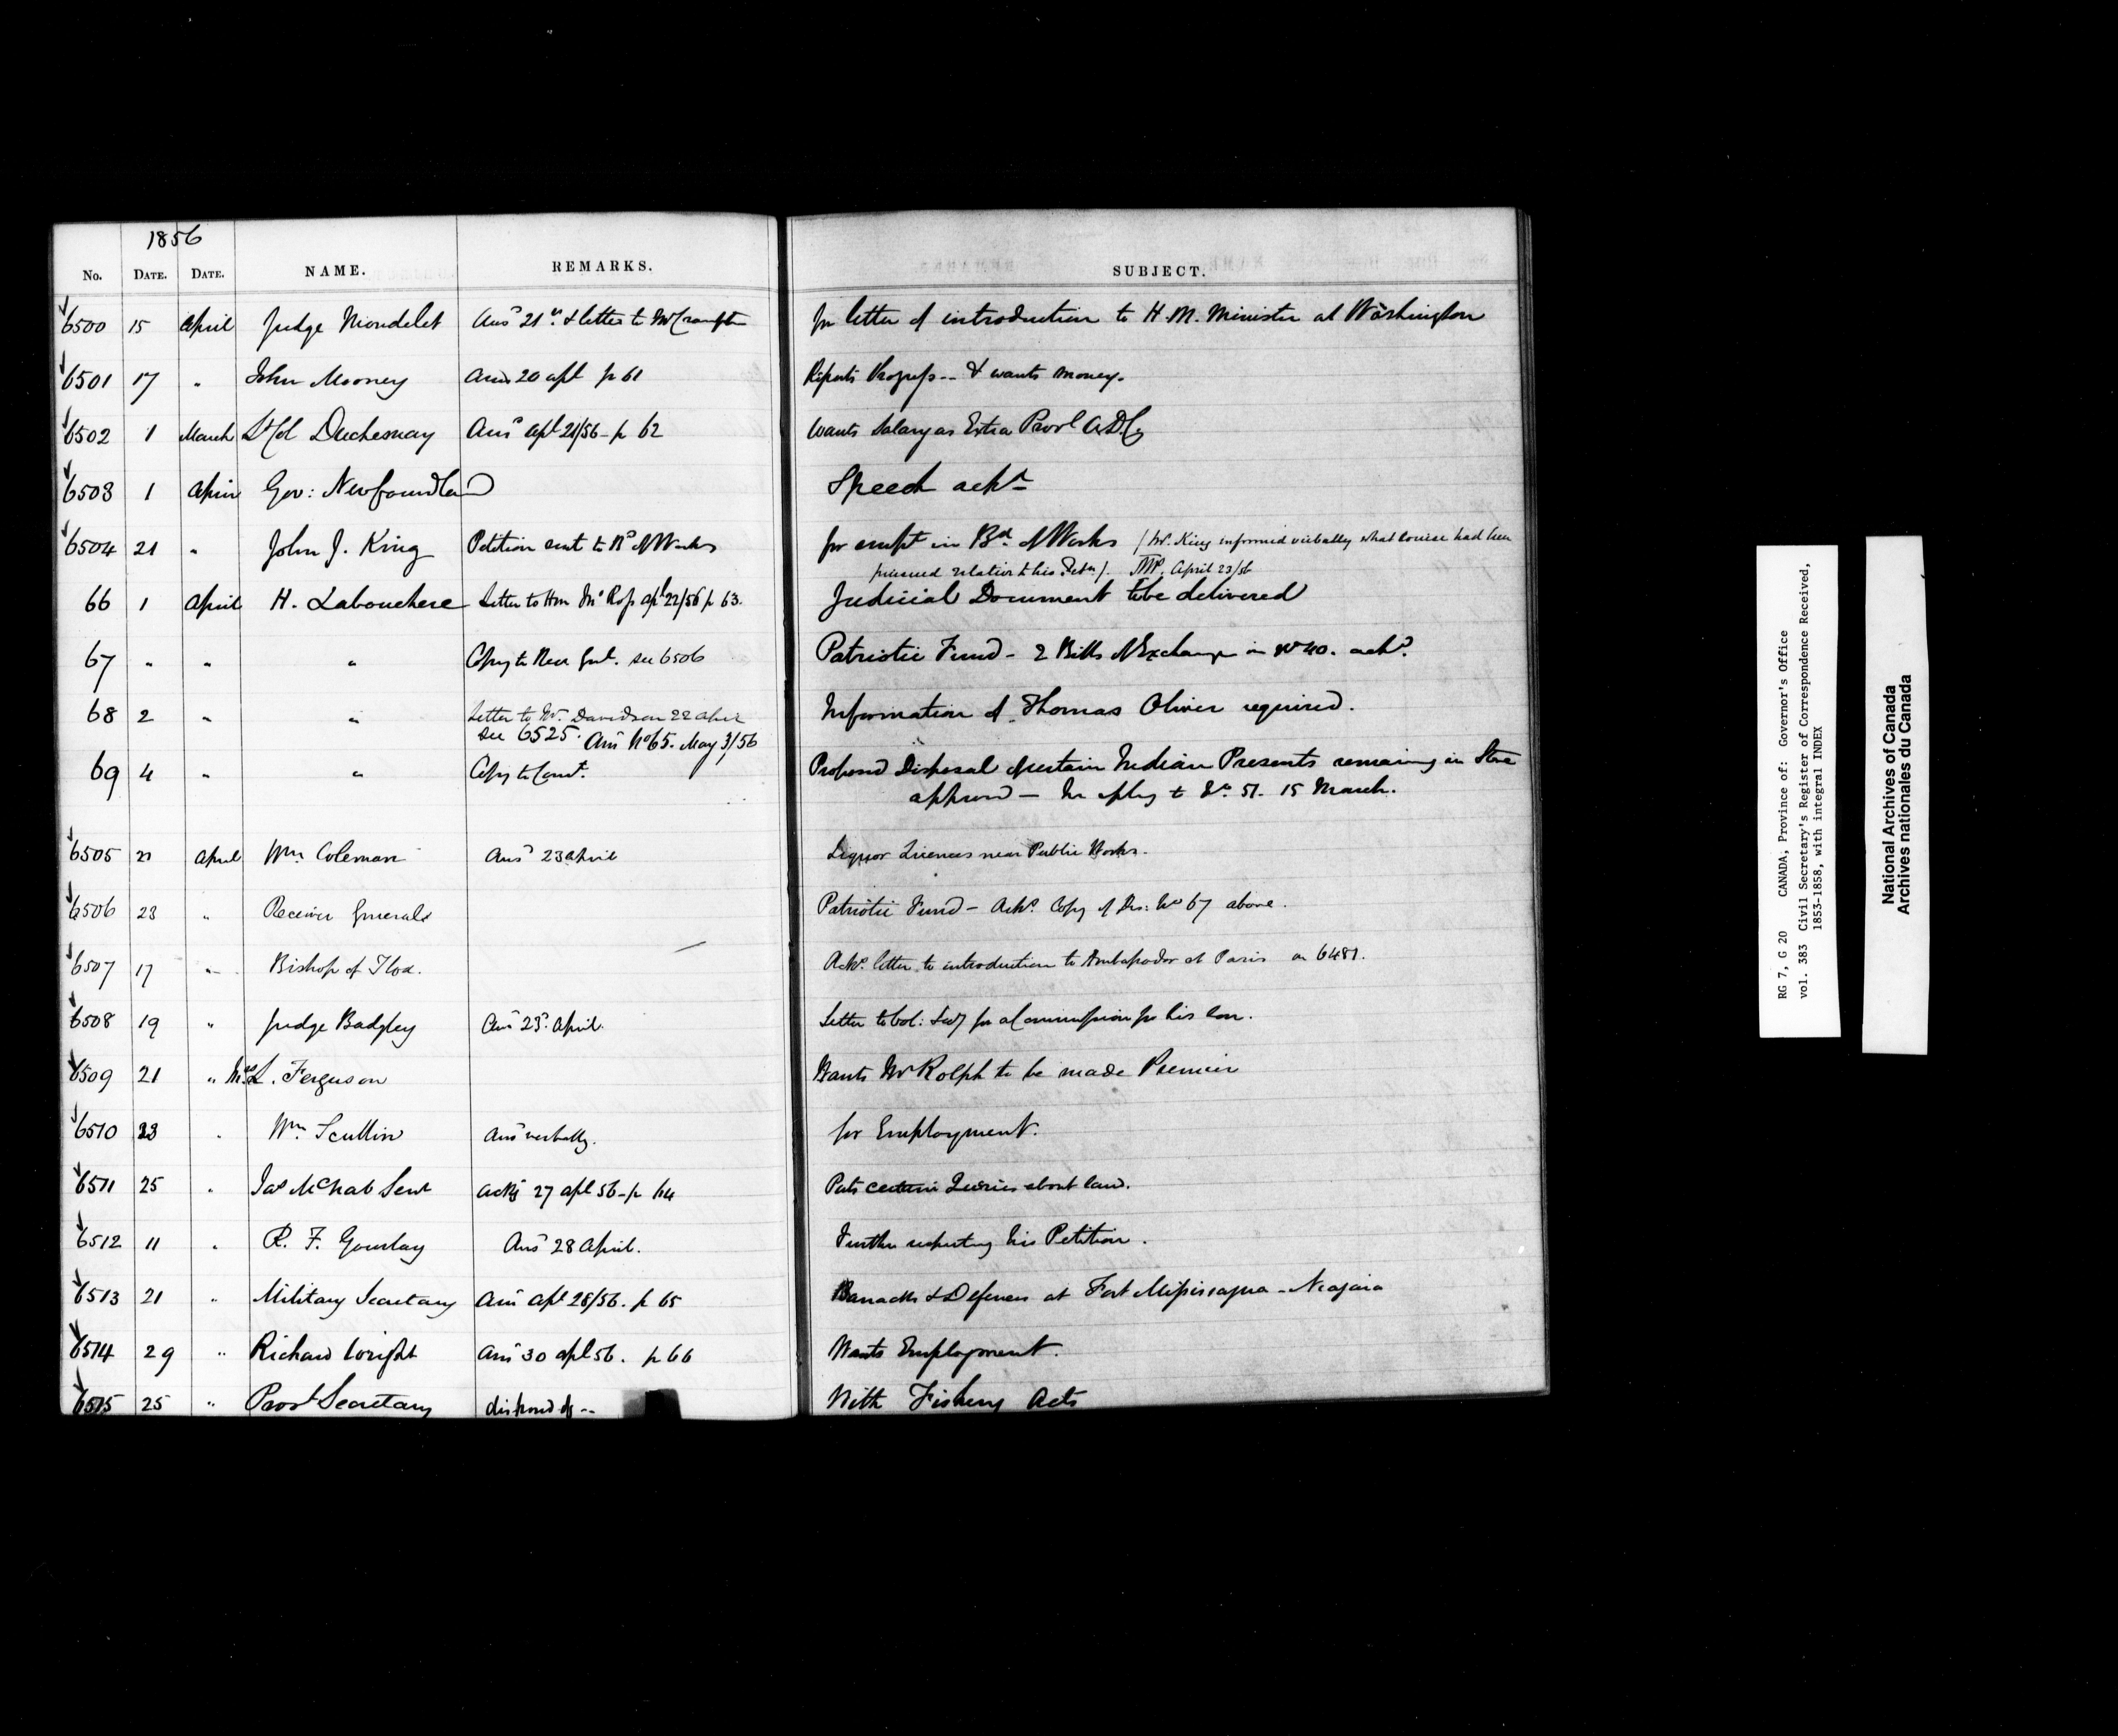 1856
No. DATE. DATE. NAME. REMARKS. SUBJECT.
6500 15 April Judge Mondelet Ansd 21st & letter to Mr Crampton for letter of introduction to H.M. Minister at Washington
6501 17 " John Mooney Ansd 20 apl p 61 Reports Progress -- & wants money.
6502 1 March Lt Col Duchesnay Ansd apl 21/56 - p 62 Wants Salary as Extra Provl A.D.C.
6503 1 April Gov: Newfoundland Speech ackd
6504 21 " John J. King Petition sent to Bd of Works for empt in Bd of Works / Mr. King informed verbally what course had been
pursued relative to his Petn /. April 23/56
66 1 April H. Labouchere Letter to Hon Mr Ross apl 22/56 p 63. Judicial Document to be delivered
67 " " " Copy to Recr Genl. see 6506 Patriotic Fund - 2 Bills of Exchange in No 40. ackd.
68 2 " " Letter to Mr. Davidson 22 April Information of Thomas Oliver required.
see 6525. Ansd No 65. May 3/56
69 4 " " Copy to Comt. Proposed Disposal of certain Indian Presents remaining in Store
approved — In reply to No. 51. 15 March.
6505 21 April Wm Coleman Ansd 23 April Liquor Licences near Public Works.
6506 23 " Receiver General Patriotic Fund - Ackd. Copy of Des: No 67 above.
6507 17 " Bishop of Tloa. Ackd. letter to introduction to Ambassador at Paris on 6481.
6508 19 " Judge Badgley Ansd 23d. April. Letter to Col: Secy for a Commission for his Son.
6509 21 " Mrs L. Ferguson Wants Mr Rolph to be made Premier
6510 23 " Wm Scullin Ansd verbally. for Employment.
6511 25 " Jas McNab Senr Ackd 27 apl 56 - p 64 Puts certain Queries about law.
6512 11 " R. F. Gourlay Ansd 28 April. Further respecting his Petition.
6513 21 " Military Secretary Ansd apl 28/56. p 65 Barracks & Defences at Fort Missisagua - Niagara
6514 29 " Richard Wright Ansd 30 apl 56. p 66 Wants Employment.
6515 25 " Provl Secretary disposed of -- With Fishery Acts
RG 7, G 20 CANADA, Province of: Governor's Office
vol. 383 Civil Secretary's Register of Correspondence Received,
1853-1858, with integral INDEX
National Archives of Canada
Archives nationales du Canada